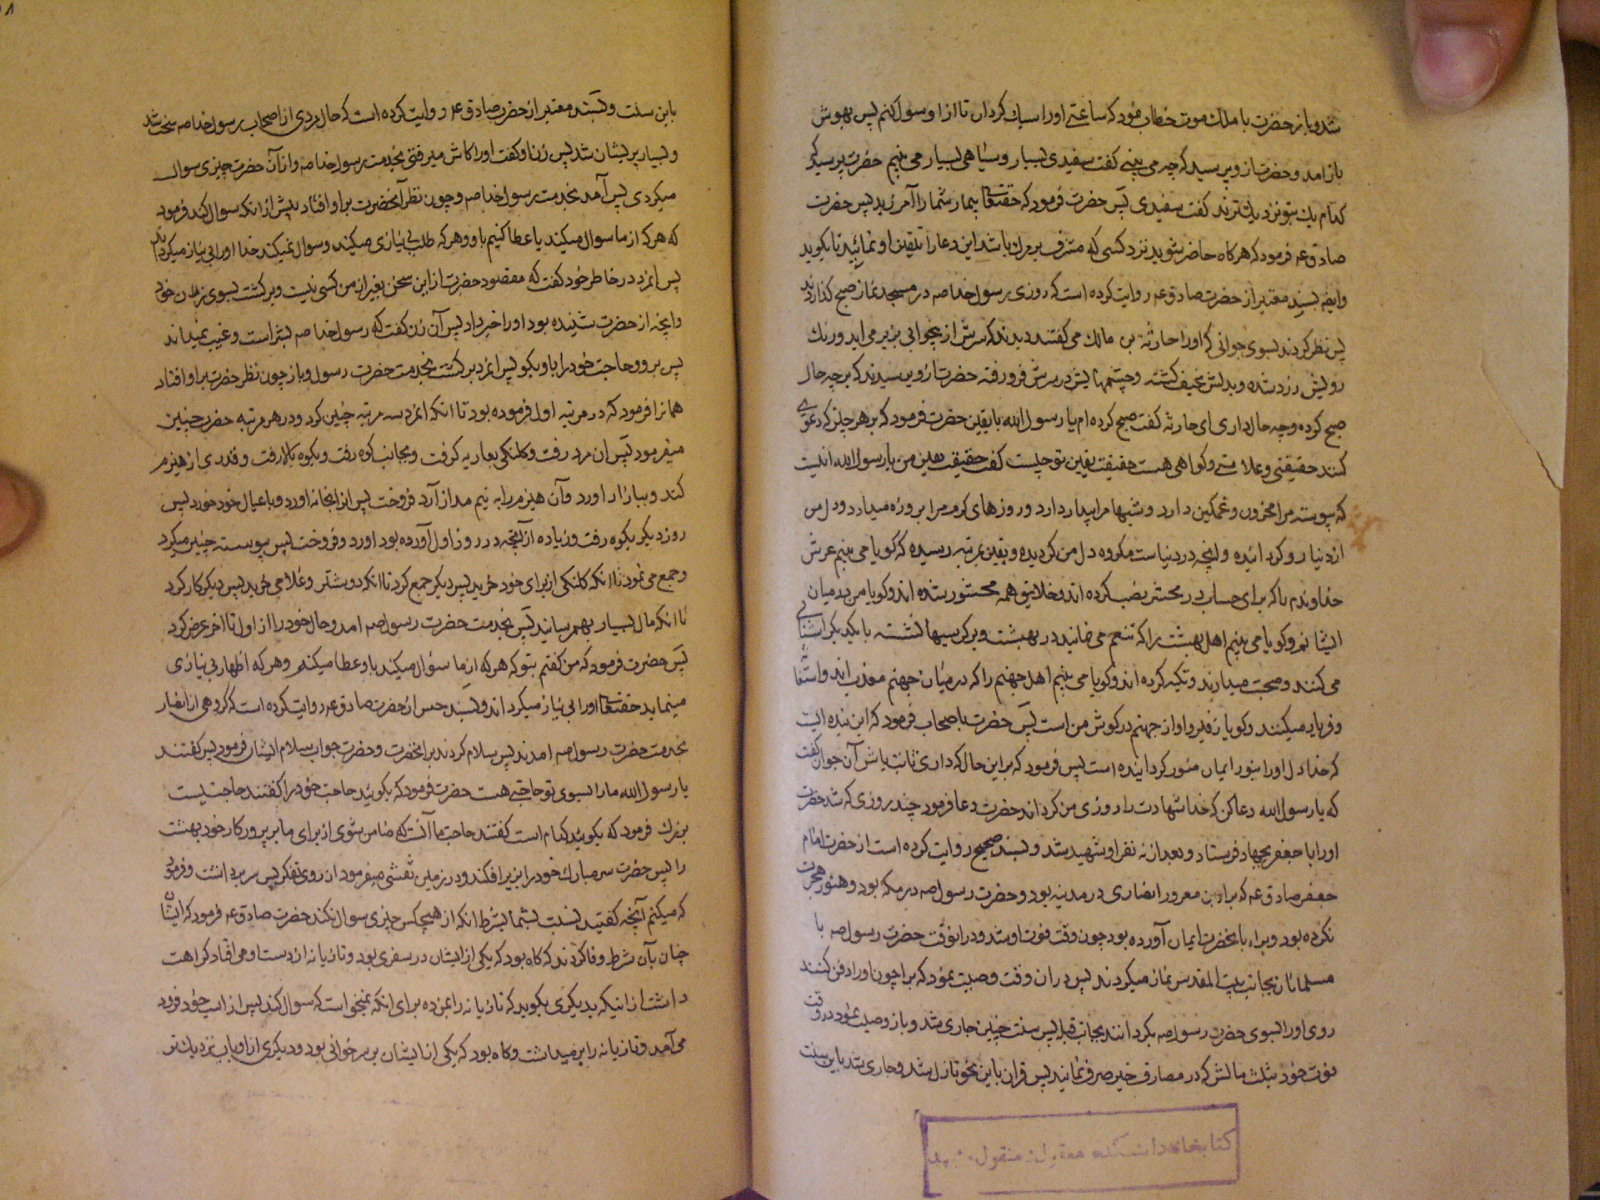 شد و باز حضرت با ملك موت خطاب نمود كه ساعتى او را سبك كردان تا از او سوال كنم پس بهوش
باز امد و حضرت از و پرسيد كه چه مى بينى كفت سفيدى بسيار و سياهى بسيار مى بينم حضرت پرسيد كه
كدام يك بتو نزديك ترند كفت سفيدى پس حضرت فرمود كه حقتعالى بيمار شما را آمرزيد پس حضرت
صادق ع فرمود كه هركاه حاضر شويد نزد كسى كه مشرف بر مرك باشد اين دعا را تلقين او نمائيد تا بكويد
وايضا بسند معتبر از حضرت صادق ع روايت كرده است كه روزى رسول خدا ص در مسجد نماز صبح كذاردند
پس نظر كردند بسوى جوانى كه او را حارثة بن مالك مى كفتند ديدند كه سرش از بيخوابى بزير مى ايد و رنك
رويش زرد شده و بدنش نحيف كشته و چشمهايش در سرش فرو رفته حضرت از و پرسيدند كه بر چه حال
صبح كرده و چه حال دارى اى حارثه كفت صبح كرده ام يا رسول الله با يقين حضرت فرمود كه بر هر چيز كه دعوى
كنند حقيقتى و علامتى و كواهى هست حقيقت يقين تو چيست كفت حقيقت يقين من يا رسول الله اينست
كه پيوسته مرا محزون و غمكين دارد و شبها مرا بيدار دارد و روزهاى كرم مرا بروزه ميدارد و دل من
از دنيا رو كردانيده و انچه در دنياست مكروه دل من كرديده و يقين بمرتبه رسيده كه كويا مى بينم عرش
خداوندم را كه براى حساب در محشر نصب كرده اند و خلايق همه محشور شده اند و كويا من در ميان
ايشانم و كويا مى بينم اهل بهشت را كه تنعم مى نمايند در بهشت و بر كرسيها نشسته با يكديكر اشنائى
مى كنند و صحبت ميدارند و تكيه كرده اند و كويا مى بينم اهل جهنم را كه در ميان جهنم معذب اند و استغاثه
و فرياد ميكنند و كويا زفير و اواز جهنم در كوش من است پس حضرت با صحاب فرمود كه اين بنده ايست
كه خدا دل او را بنور ايمان منور كردانيده است پس فرمود كه بر اين حال كه دارى ثابت باش آن جوان كفت
كه يا رسول الله دعا كن كه خدا شهادت را روزى من كرداند حضرت دعا فرمود چند روزى كه شد حضرت
او را با جعفر بجهاد فرستاد و بعد از نه نفر او شهيد شد و بسند صحيح روايت كرده است از حضرت امام
جعفر صادق ع كه براء بن معرور انصارى در مدينه بود و حضرت رسول ص در مكه بود و هنوز هجرت
نكرده بود و براء با نحضرت ايمان آورده بود چون وقت فوت او شد و در انوقت حضرت رسول ص با
مسلمانان بجانب بيت المقدس نماز ميكردند پس در ان وقت وصيت نمود كه براء چون او را دفن كنند
روى او را بسوى حضرت رسول ص بكردانند بجانب قبله پس سنت چنين جارى شد و باز وصيت نمود در وقت
فوت خود بثلث مالش كه در مصارف خير صرف نمايند پس قران با ين نحو نازل شد و جارى شد باين سنت
كتابخانه دانشكده معقول و منقول
باين سنت و بسند معتبر از حضرت صادق ع روايت كرده است كه حال مردى از اصحاب رسول خدا ص سخت شد
و بسيار پريشان شد پس زن او كفت او را كاش ميرفتى بخدمت رسول خدا ص و از آن حضرت چيزى سوال
ميكردى پس آمد بخدمت رسول خدا ص و چون نظر آنحضرت بر او افتاد پيش از انكه سوال كند فرمود
كه هر كه از ما سوال ميكند با عطا كنيم با و و هر كه طلب بى نيازى ميكند و سوال نميكند خدا او را بى نياز ميكرداند
پس انمرد در خاطر خود كفت كه مقصود حضرت از اين سخن بغير از من كسى نيست و بركشت بسوى زن خود
و انچه از حضرت شنيده بود او را خبر داد پس آن زن كفت كه رسول خدا ص بشر است و غيب نميداند
پس برو و حاجت خود را باو بكو پس انمرد بركشت بخدمت حضرت رسول و باز چون نظر حضرت بر او افتاد
همانرا فرمود كه در مرتبه اول فرموده بود تا انكه انمرد سه مرتبه چنين كرد و در هر مرتبه حضرت چنين
ميفرمود پس ان مرد رفت و كلنكى بعاريه كرفت و بجانب كوه رفت و بكوه بالا رفت و قدرى از هيزم
كند و ببازار اورد و آن هيزم را به نيم مد از آرد فروخت پس انرا بخانه اورد و با عيال خود خورد پس
روز ديكر بكوه رفت و زياده از آنچه در روز اول آورده بود اورد و فروخت پس پيوسته چنين ميكرد
و جمع مى نمود تا انكه كلنكى از براى خود خريد پس ديكر جمع كرد تا انكه دو شتر و غلامى خريد پس ديكر كار كرد
تا انكه مال بسيار بهم رسانيد پس بخدمت حضرت رسول ص امد و حال خود را از اول تا اخر عرض كرد
پس حضرت فرمود كه من كفتم بتو كه هر كه از ما سؤال ميكند باو عطا ميكنم و هر كه اظهار بى نيازى
مينمايد حقتعالى او را بى نياز ميكرداند و بسند حسن از حضرت صادق ع روايت كرده است كه كروهى از انصار
بخدمت حضرت رسول ص امدند پس سلام كردند بر انحضرت و حضرت جواب سلام ايشان فرمود پس كفتند
يا رسول الله ما را بسوى تو حاجتى هست حضرت فرمود كه بكوييد حاجت خود را كفتند حاجتيست
بزرك فرمود كه بكوييد كدام است كفتند حاجت ما آنست كه ضامن شوى از براى ما بر پروردكار خود بهشت
را پس حضرت سر مبارك خود را بزير افكند و در زمين نقشى ميفرمود از روى تفكر پس سر برداشت و فرمود
كه ميكنم آنچه كفتيد نسبت بشما بشرط انكه از هيچكس چيزى سوال نكنيد حضرت صادق ع فرمود كه ايشان
چنان بآن شرط وفا كردند كه كاه بود كه يكى از ايشان در سفرى بود و تازيانه از دست او مى افتاد كراهت
داشت از اينكه بديكرى بكويد كه تازيانه را بمن ده براى انكه نميخواست كه سوال كند پس از اسب خود فرود
مى آمد و تازيانه را بر ميداشت و كاه بود كه يكى از ايشان بر سر خوانى بود و ديكرى از او باب نزديك تر